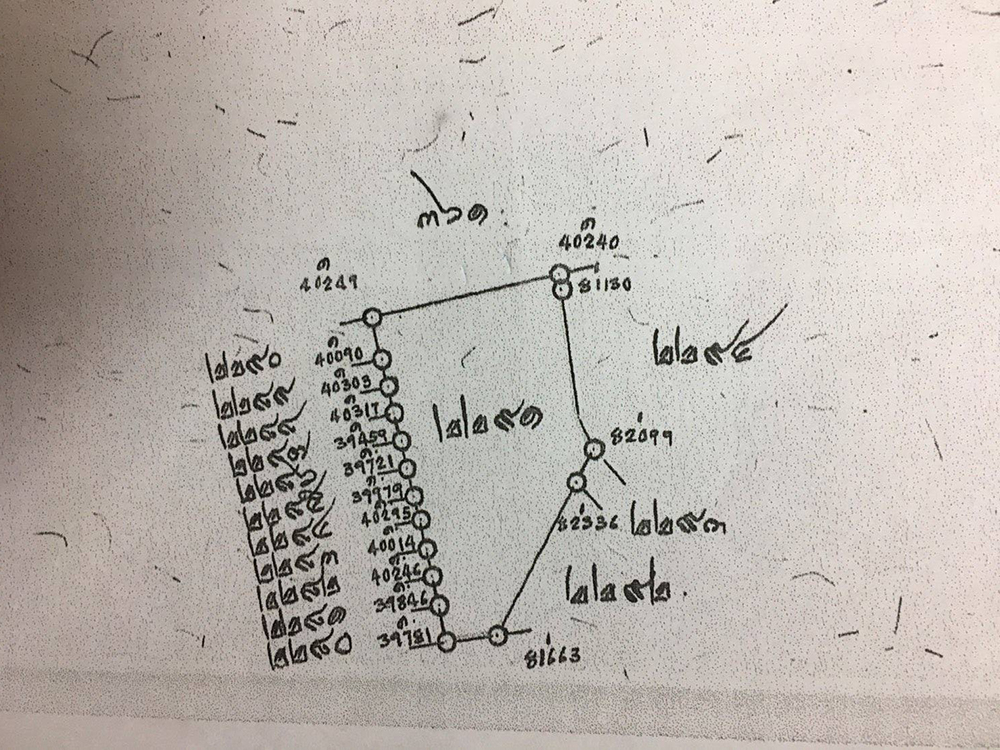 ๓๖๑
ด
40240
81130
ด
40249
๒๒๙๐
ด
40090
๒๒๘๙
ด
40303
๒๒๙๔
๒๒๘๘
ด
40317
๒๒๙๑
๒๒๘๗
ด
39459
82099
๒๒๘๖
ด
39721
๒๒๘๕
ด
39979
๒๒๘๔
ด
40295
82336
๒๒๙๓
๒๒๘๓
ด
40014
๒๒๘๒
ด
40246
๒๒๙๒
๒๒๘๑
ด
39846
๒๒๘๐
ด
39781
81663